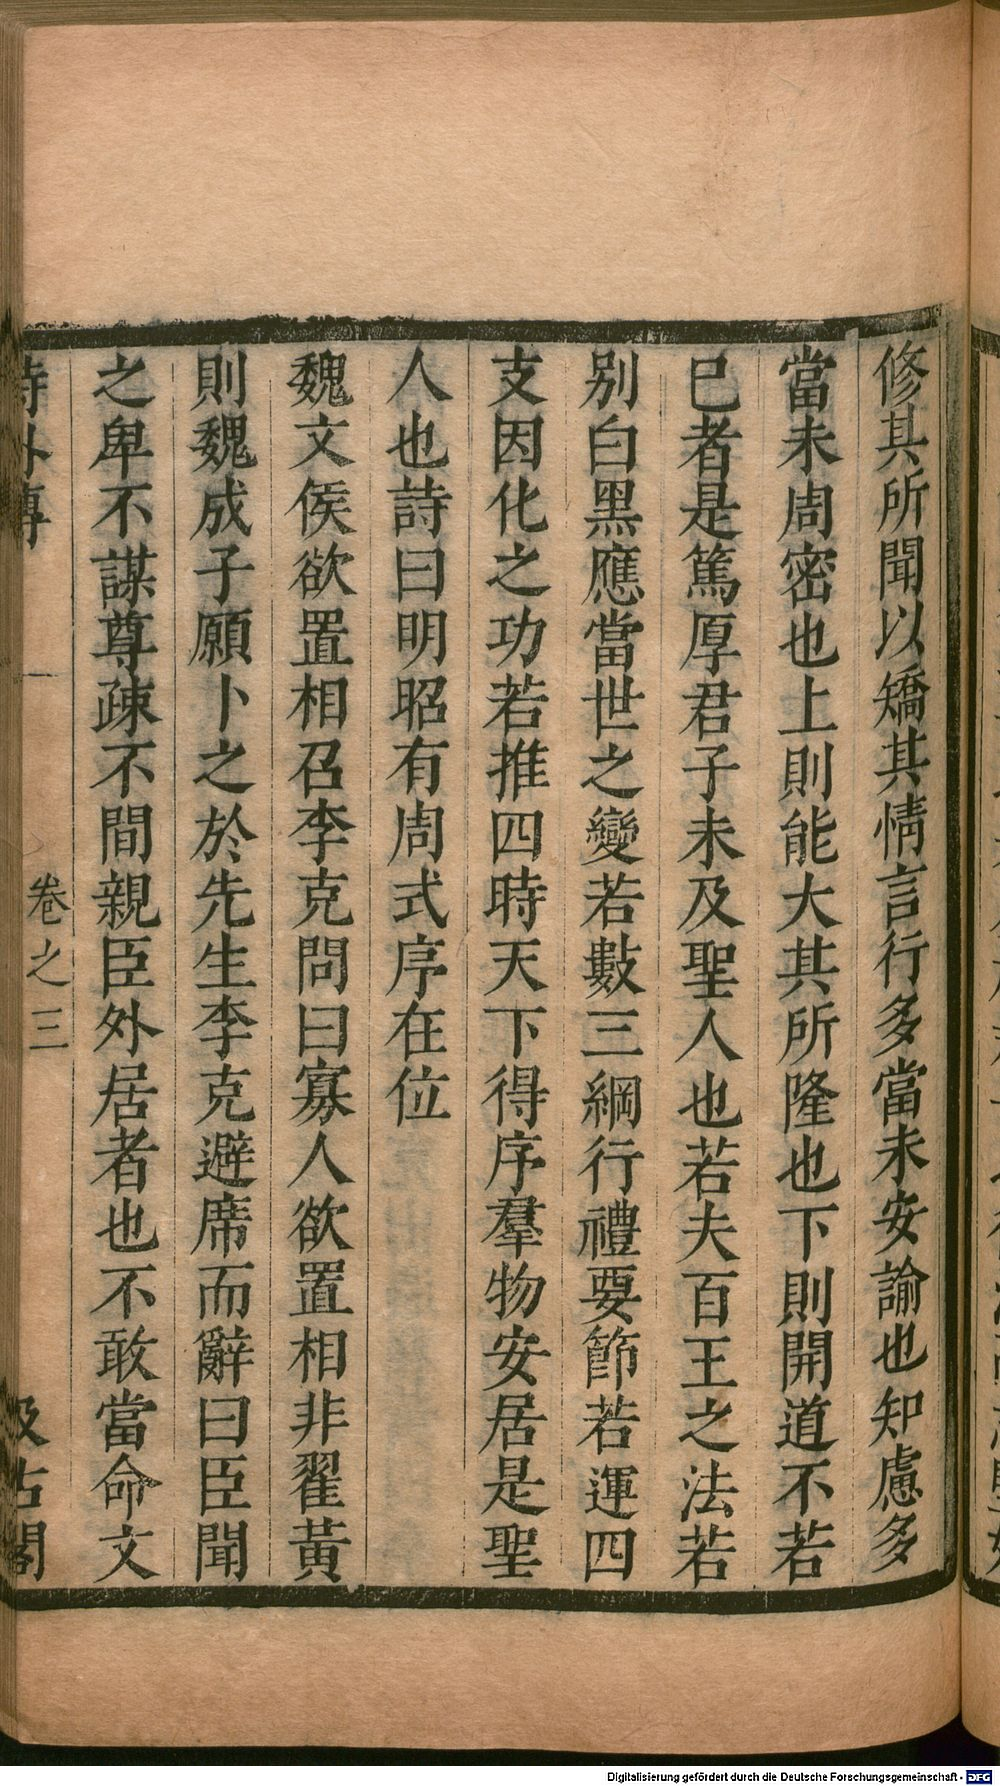 修其所聞以矯其情言行多當未安諭也知慮多
當未周密也上則能大其所隆也下則開道不若
已者是篤厚君子未及聖人也若夫百王之法若
别白黑應當世之變若數三綱行禮要節若運四
支因化之功若推四時天下得序羣物安居是聖
人也詩曰明昭有周式序在位
魏文侯欲置相召李克問曰寡人欲置相非翟黃
則魏成子願卜之於先生李克避席而辭曰臣聞
之卑不謀尊疎不間親臣外居者也不敢當命文
詩外傳 卷之三 汲古閣
Digitalisierung gefördert durch die Deutsche Forschungsgemeinschaft - DFG